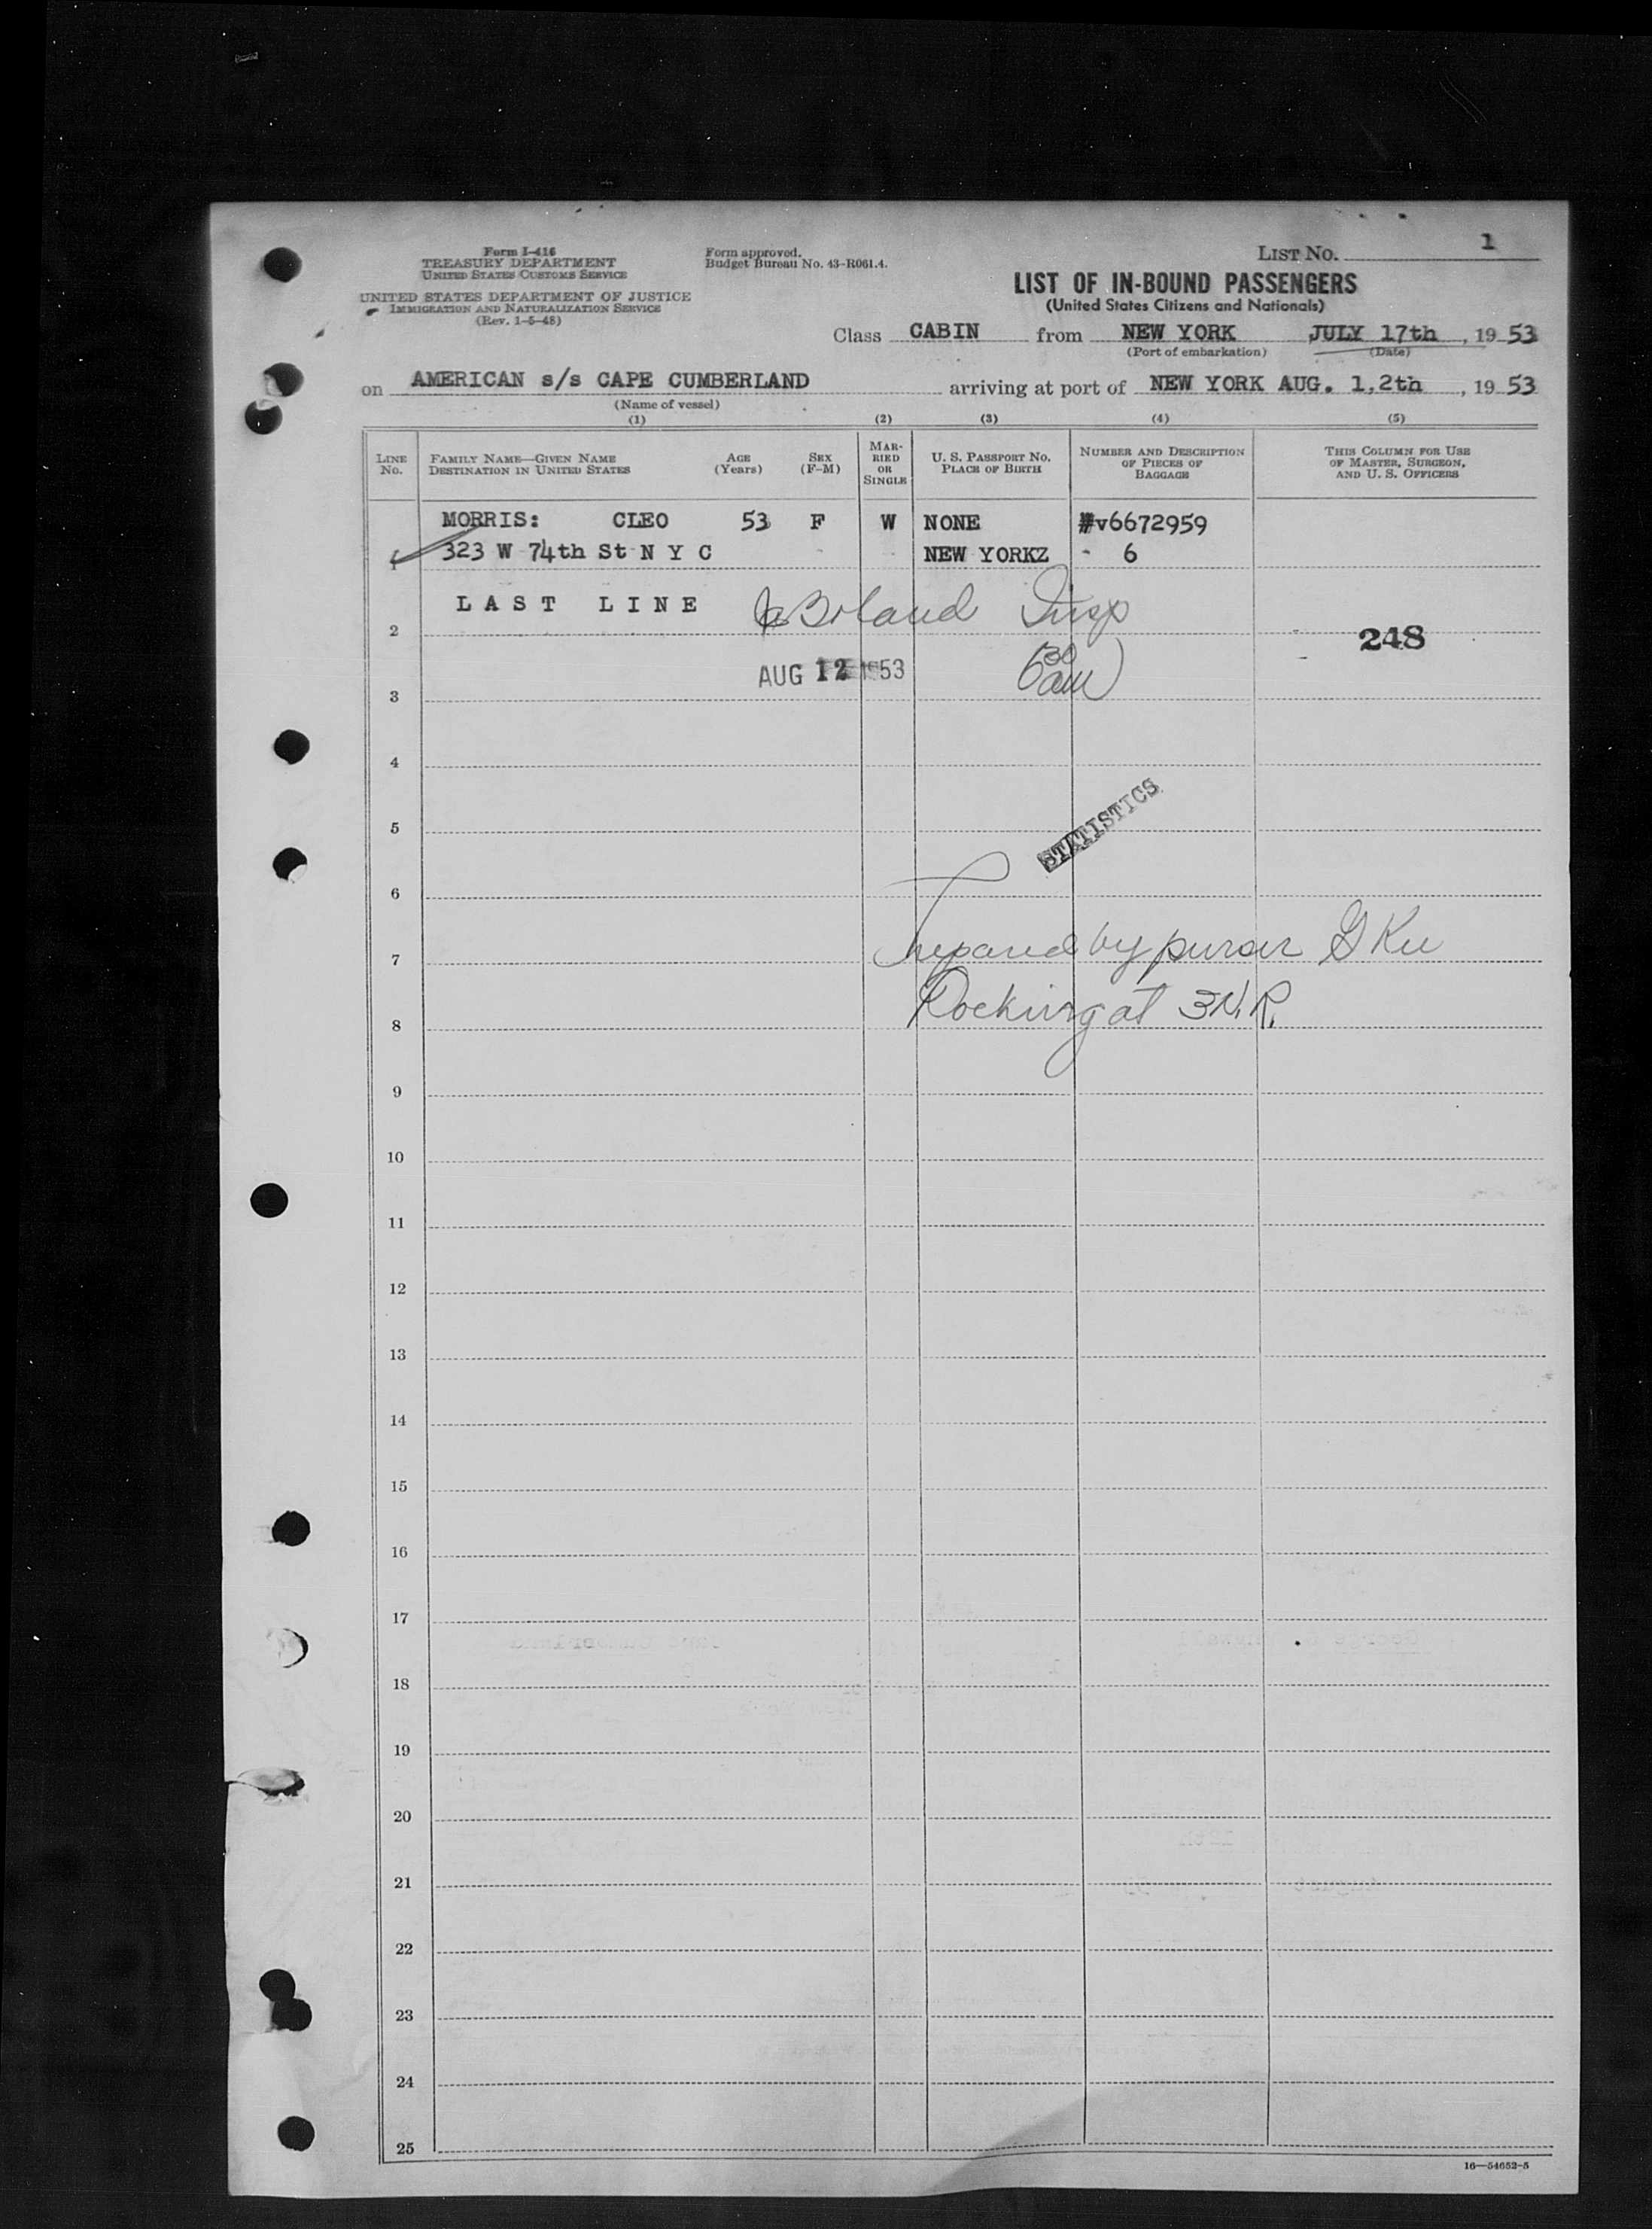 Form I-416
TREASURY DEPARTMENT
UNITED STATES CUSTOMS SERVICE
UNITED STATES DEPARTMENT OF JUSTICE
IMMIGRATION AND NATURALIZATION SERVICE
(Rev. 1-5-48)
Form approved.
Budget Bureau No. 43-R061.4.
LIST NO. 1
LIST OF IN-BOUND PASSENGERS
(United States Citizens and Nationals)
Class CABIN from NEW YORK JULY 17th, 1953
(Port of embarkation) (Date)
on AMERICAN s/s CAPE CUMBERLAND arriving at port of NEW YORK AUG. 1,2th, 1953
(Name of vessel)
(1) (2) (3) (4) (5)
LINE NO.
FAMILY NAME—GIVEN NAME
DESTINATION IN UNITED STATES
AGE (Years)
SEX (F-M)
MARRIED OR SINGLE
U. S. PASSPORT NO.
PLACE OF BIRTH
NUMBER AND DESCRIPTION
OF PIECES OF
BAGGAGE
THIS COLUMN FOR USE
OF MASTER, SURGEON,
AND U. S. OFFICERS
MORRIS: CLEO 53 F W NONE #v6672959
1 323 W 74th St N Y C NEW YORKZ - 6
LAST LINE Boland Insp
2 248
AUG 12 1953 6 30 am
3
4
STATISTICS
5
6
7 Prepared by purser
Docking at 3 N.R.
8
9
10
11
12
13
14
15
16
17
18
19
20
21
22
23
24
25
16—54652-5